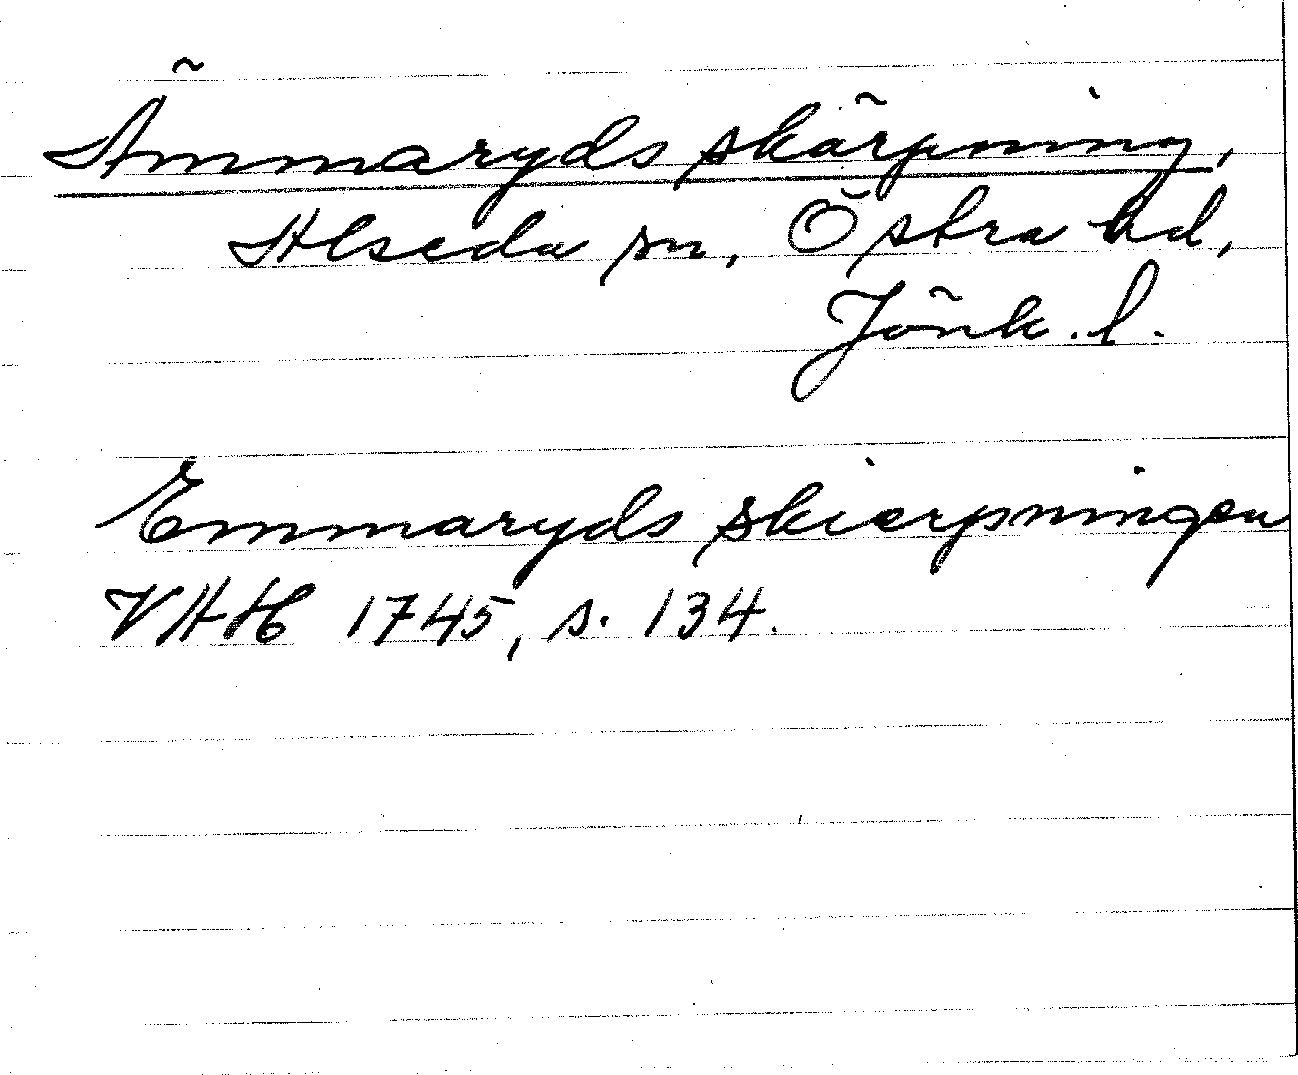 Ämmaryds skärpning,
Alseda sn, Östra hd,
Jönk. l.
Emmaryds skierpningen
VAH 1745, s. 134.